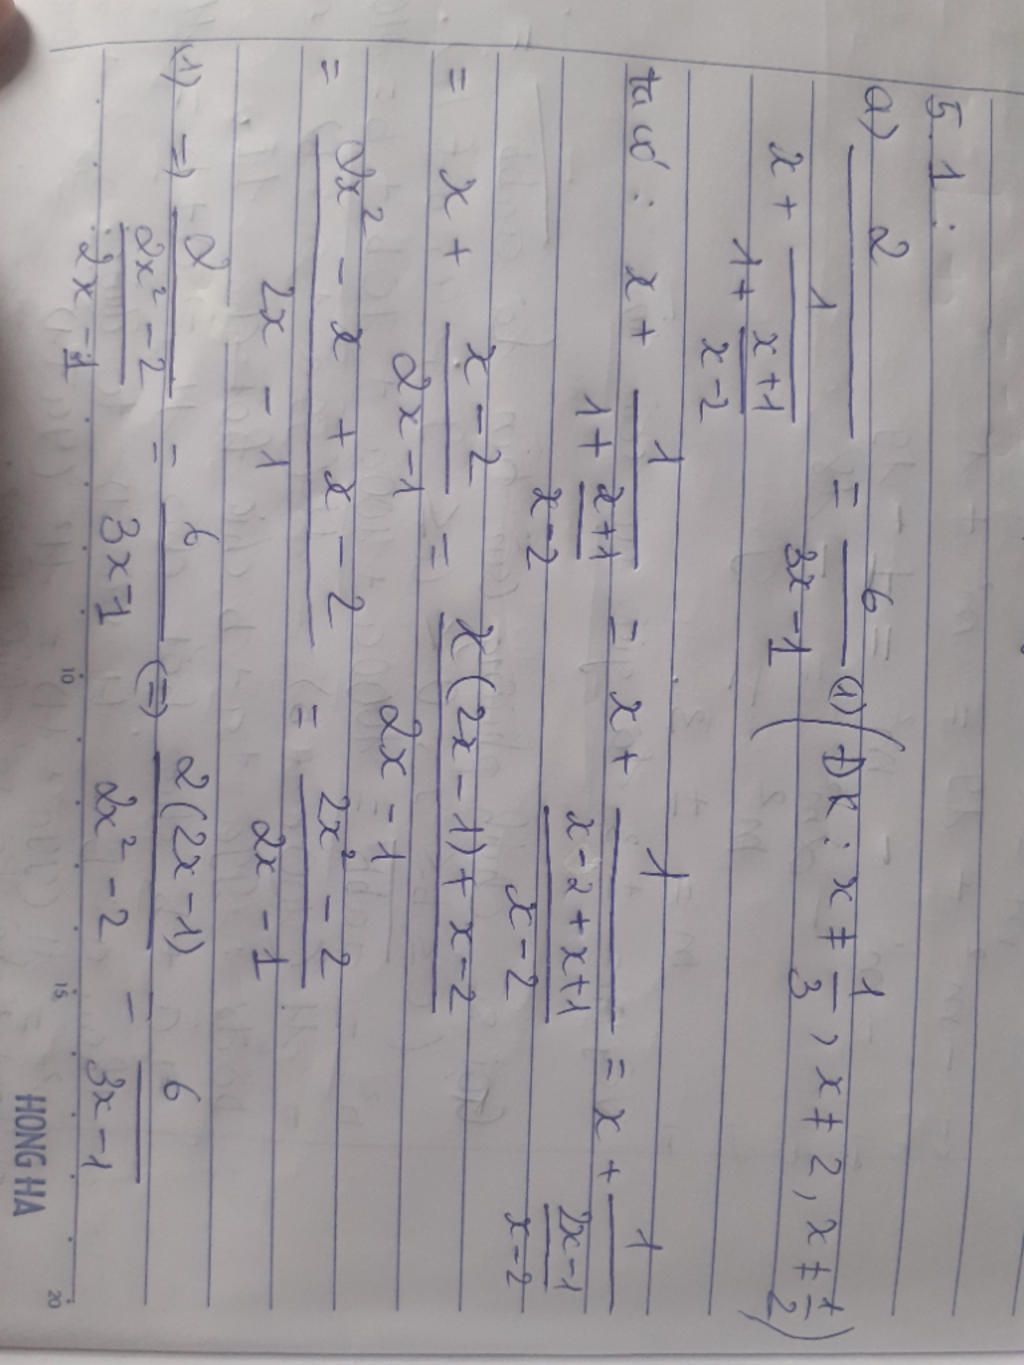 5.1:
a) 2/(x + 1/(1 + (x+1)/(x-2))) = 6/(3x-1) (1) (ĐK: x ≠ 1/3, x ≠ 2, x ≠ 1/2)
ta có: x + 1/(1 + (x+1)/(x-2)) = x + 1/((x-2+x+1)/(x-2)) = x + 1/((2x-1)/(x-2))
= x + (x-2)/(2x-1) = (x(2x-1)+x-2)/(2x-1)
= (2x² - x + x - 2)/(2x - 1) = (2x² - 2)/(2x - 1)
(1) => 2/((2x²-2)/(2x-1)) = 6/(3x-1) (=) 2(2x-1)/(2x²-2) = 6/(3x-1)
HONG HA
10 15 20